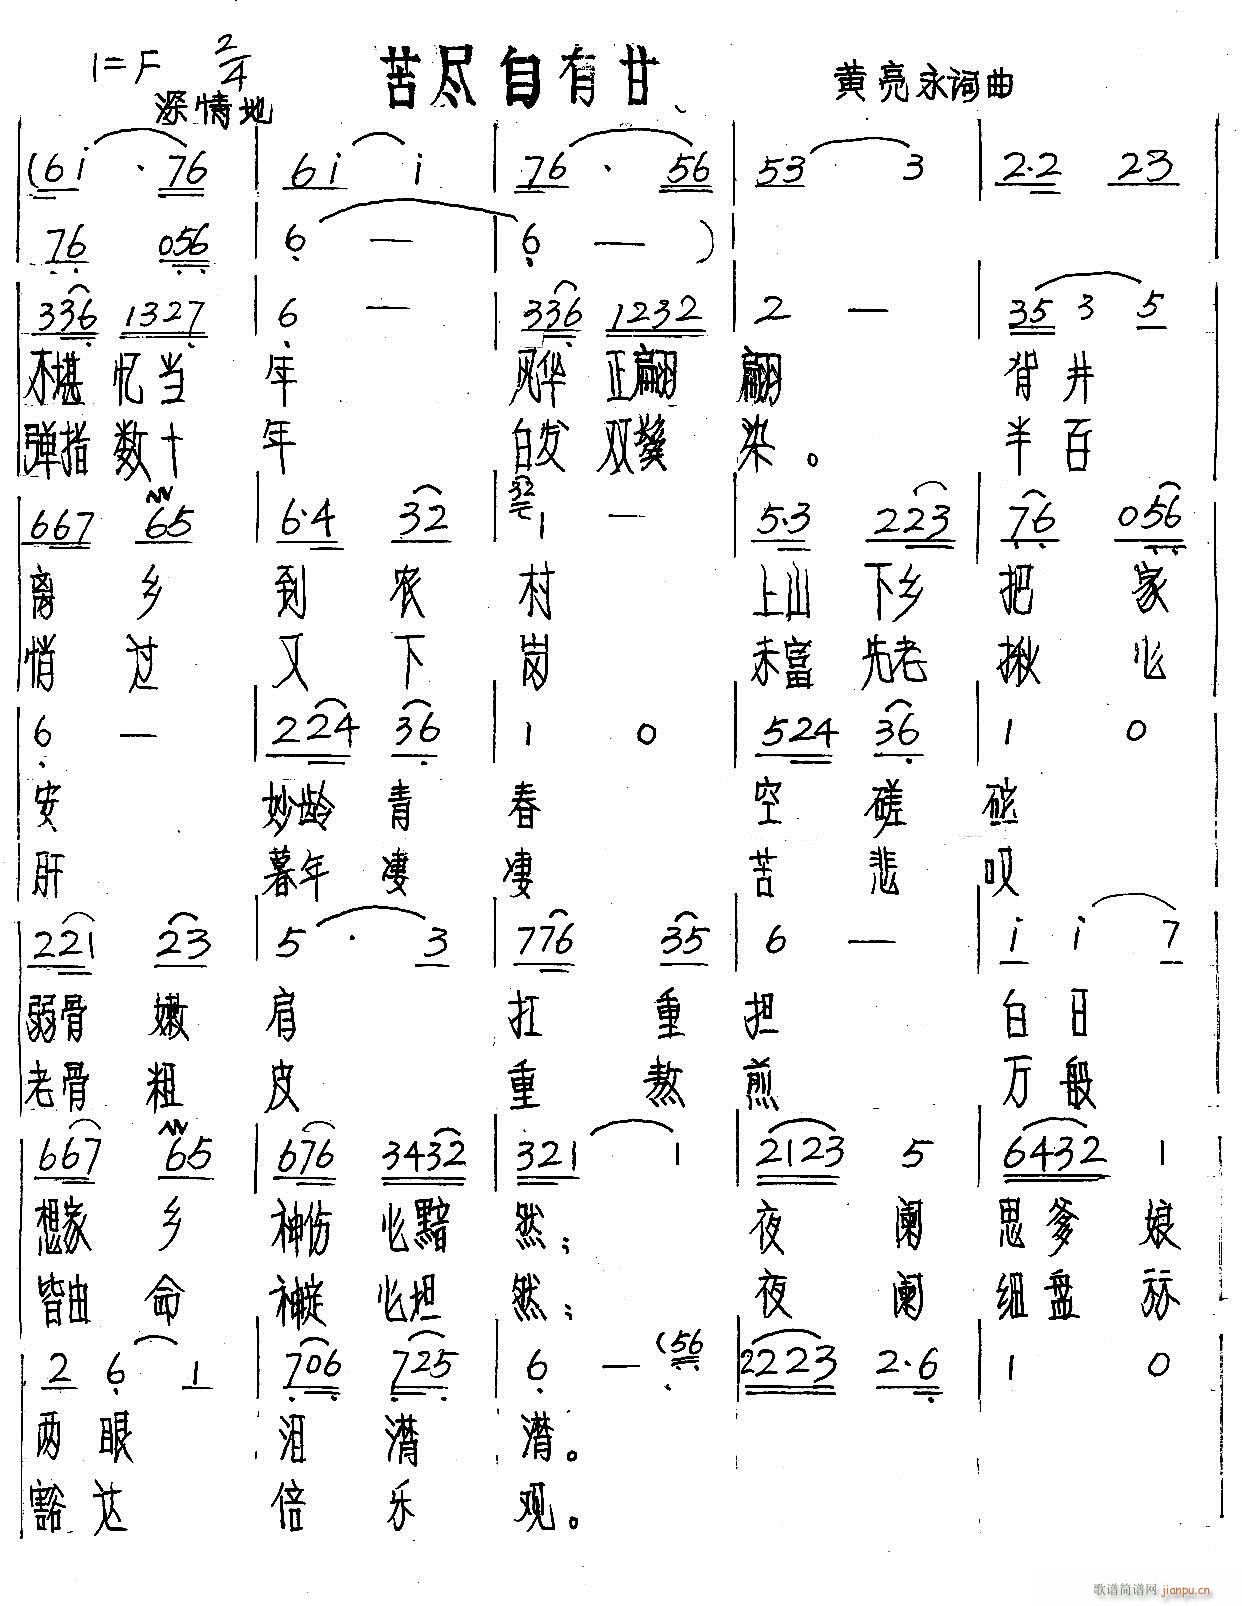 1=F 2/4 苦尽自有甘 黄亮永词曲
深情地
(6i · 76 | 6i i | 76 · 56 | 53 3 | 2·2 23
76 056 | 6 — | 6 — )
336 1327 | 6 — | 336 1232 | 2 — | 35 3 5
不堪 忆当 年 风华 正翩 翩 背井
弹指 数十 年 白发 双鬓 染。 半百
667 65 | 6·4 32 | 32 1 — | 5·3 223 | 76 056
离 乡 到 农 村 上山 下乡 把 家
悄 过 又 下 岗 未富 先老 揪 心
6 — | 224 36 | 1 0 | 524 36 | 1 0
安 妙龄 青 春 空 磋
肝 暮年 凄 凄 苦 悲 叹
221 23 | 5 · 3 | 776 35 | 6 — | i i 7
弱骨 嫩 肩 扛 重 担 白 日
老骨 粗 皮 重 熬 煎 万 般
667 65 | 676 3432 | 321 1 | 2123 5 | 6432 1
想家 乡 神伤 心黯 然； 夜 阑 思 爹 娘
皆由 命 神定 心坦 然； 夜 阑 细 盘
2 6 1 | 706 725 | 6 — (56 | 2223 2·6 | 1 0
两 眼 泪 潸 潸。
豁 达 倍 乐 观。
歌谱简谱网 jianpu.cn